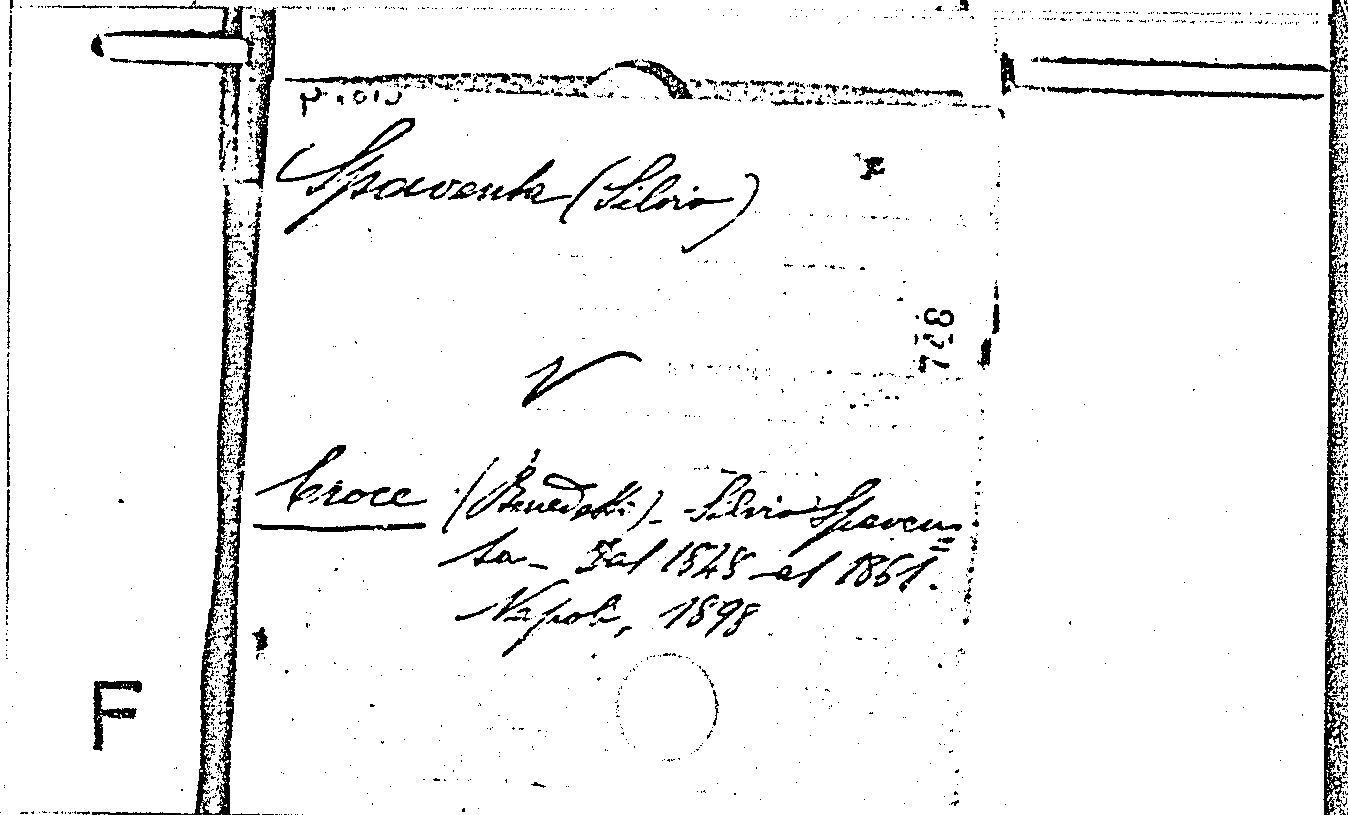 Spaventa (Silvio)
V
728
Croce (Benedetto) - Silvio Spaven=
ta - Dal 1848 al 1861.
Napoli, 1898
F